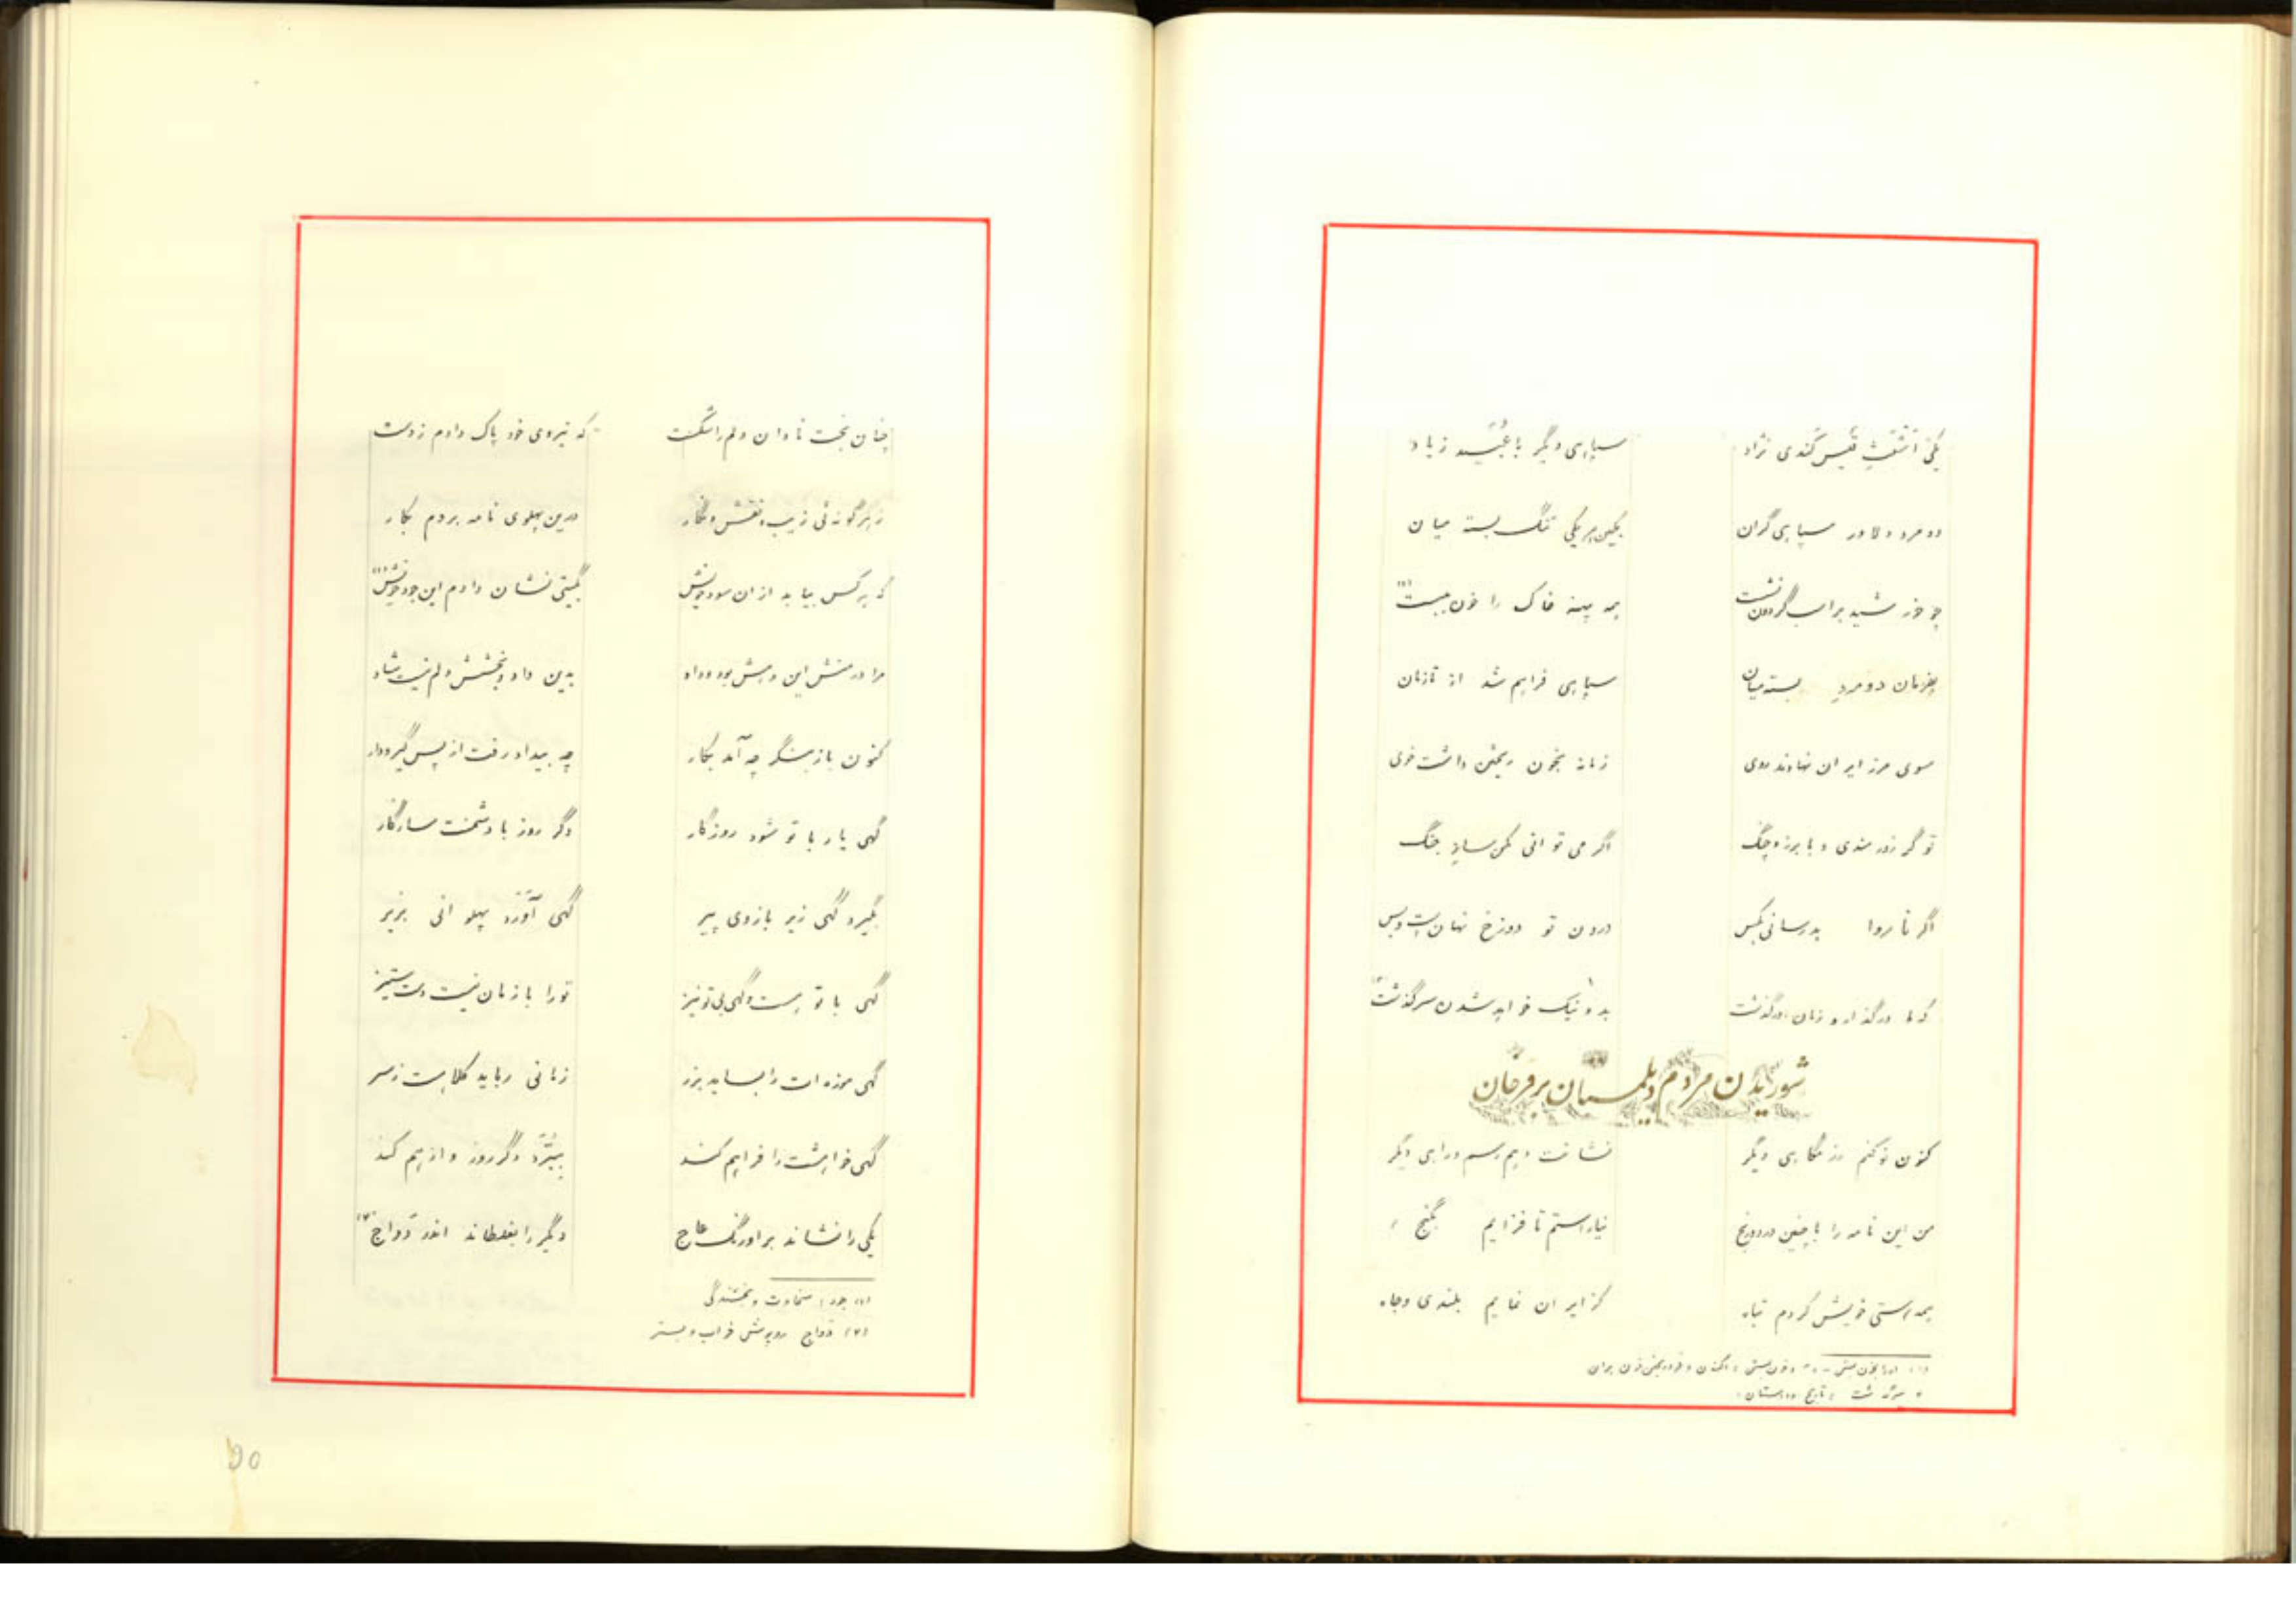 یکی اشعث قیس کندی نژاد    سپاهی دیگر با عبید زیاد
دو مرد دلاور سپاهی گران    بکین هر یکی تنگ بسته میان
چو خورشید بر اسب گردون نشست    همه پهنه خاک را خون ببست (۱)
بفرمان دو مرد بسته میان    سپاهی فراهم شد از تازیان
سوی مرز ایران نهادند روی    زمانه بخون ریختن داشت خوی
تو گر زورمندی و با برز و چنگ    اگر می توانی مکن ساز جنگ
اگر ناروا بد رسانی بکس    درون تو دوزخ نهان است و بس
که ما درگذار و زمان درگذشت    بد و نیک خواهد شدن سرگذشت
شوریدن مردم دیلمستان بر فرخان
کنون نو کنم رزمگاهی دیگر    نشانت دهم رسم و راهی دیگر
من این نامه را با چنین درد و رنج    نیاراستم تا فزایم بگنج
همه هستی خویش کردم تباه    کز ایران نمایم بلندی و جاه
سرگذشت : تاریخ و داستان
چنان بخت نادان دلم را شکست    که نیروی خود پاک دادم ز دست
ز هر گونه ئی زیب و نقش و نگار    درین پهلوی نامه بردم بکار
که هر کس بیابد از ان سود خویش    بگیتی نشان دادم این جود خویش (۱)
مرا در منش این دهش بود و داد    بدین داد و بخشش دلم نیست شاد
کنون باز بنگر چه آمد بکار    چه بیداد رفت از پس گیرودار
گهی یار با تو شود روزگار    دگر روز با دشمنت سازگار
بگیرد گهی زیر بازوی پیر    گهی آورد پهلوانی بزیر
گهی با تو هست و گهی بی تو نیز    تو را با زمان نیست دست ستیز
گهی موزه ات را بساید بزر    زمانی رباید کلاهت ز سر
گهی خواهشت را فراهم کند    ببرد دگر روز و از هم کند
یکی را نشاند بر اورنگ عاج    دگیر را بغلطاند اندر دواج (۲)
(۱) جود : سخاوت و بخشندگی
(۲) دواج روپوش خواب و بستر
90